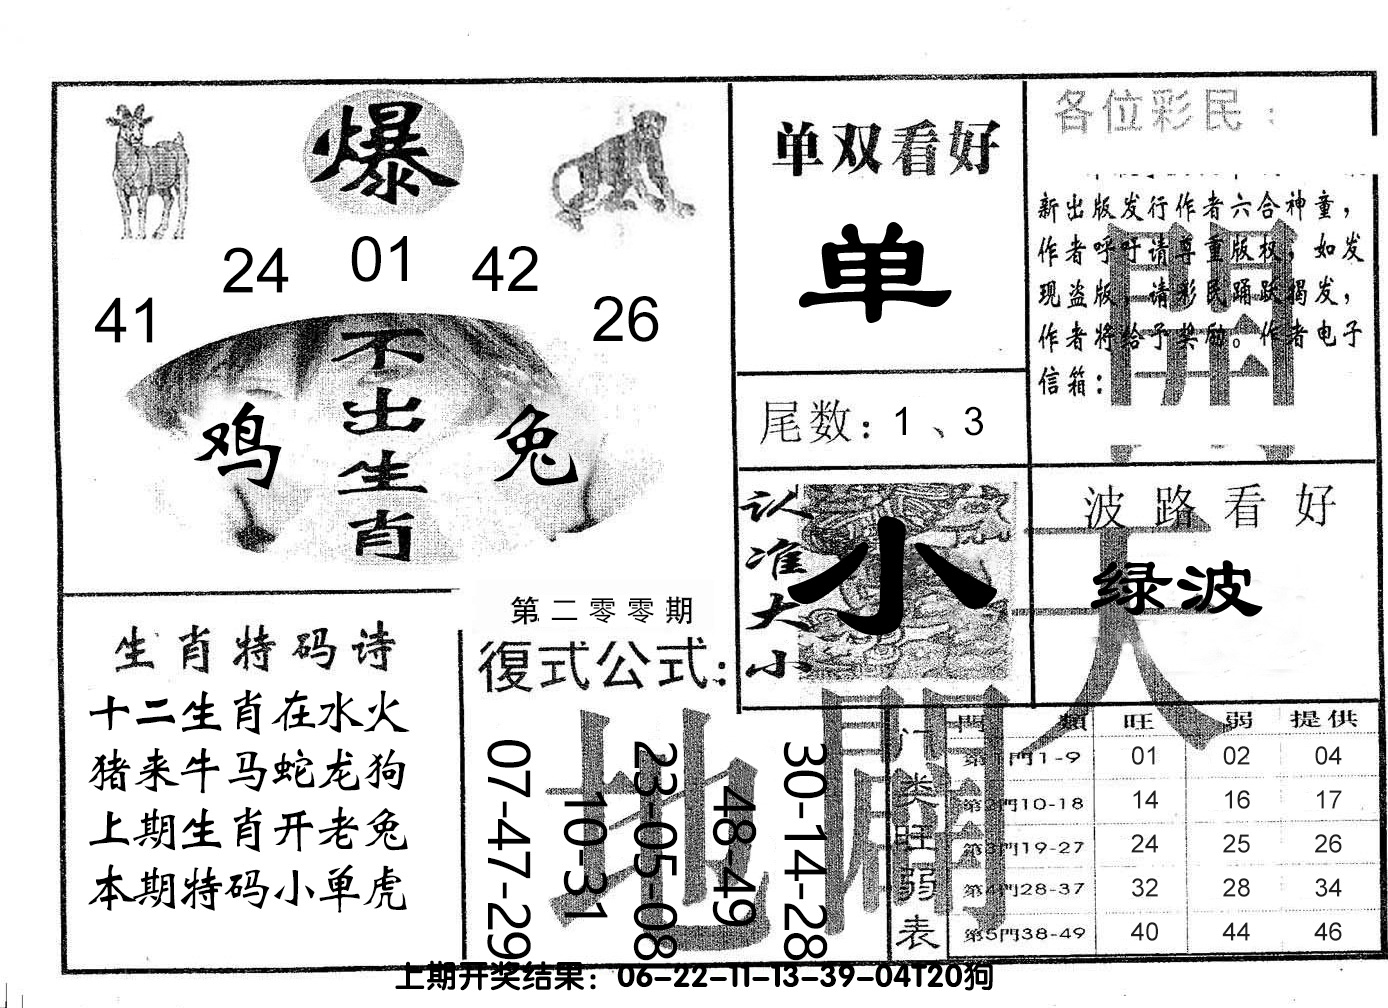 爆
24 01 42
41 26
不出生肖
鸡 兔
单双看好
单
尾数：1、3
各位彩民：
新出版发行作者六合神童，
作者呼吁请尊重版权，如发
现盗版，请彩民踊跃揭发，
作者将给予奖励。作者电子
信箱：
開
认准大小
小
波路看好
绿波
天
生肖特码诗
十二生肖在水火
猪来牛马蛇龙狗
上期生肖开老兔
本期特码小单虎
第二零零期
復式公式：
地
07-47-29
10-31
23-05-08
48-49
30-14-28
门类旺弱表
門 類 旺 弱 提供
第1門1-9 01 02 04
第2門10-18 14 16 17
第3門19-27 24 25 26
第4門28-37 32 28 34
第5門38-49 40 44 46
上期开奖结果：06-22-11-13-39-04T20狗